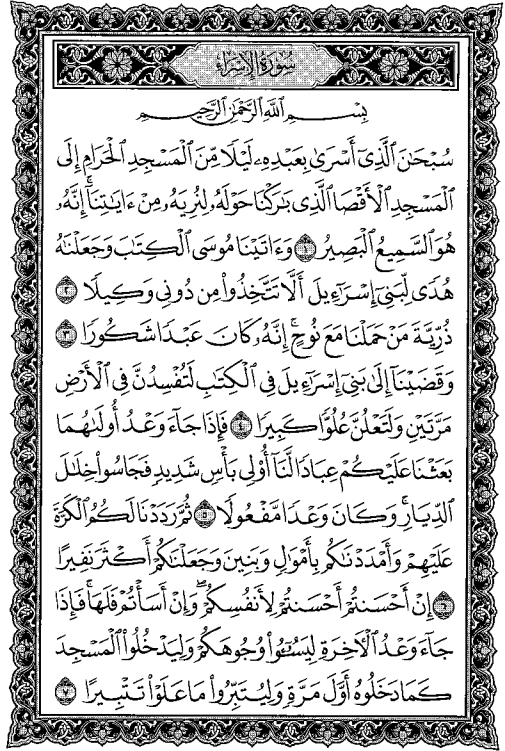 سُورَةُ الإِسْرَاءِ
بِسْمِ ٱللَّهِ ٱلرَّحْمَٰنِ ٱلرَّحِيمِ
سُبْحَٰنَ ٱلَّذِىٓ أَسْرَىٰ بِعَبْدِهِۦ لَيْلًا مِّنَ ٱلْمَسْجِدِ ٱلْحَرَامِ إِلَى
ٱلْمَسْجِدِ ٱلْأَقْصَا ٱلَّذِى بَٰرَكْنَا حَوْلَهُۥ لِنُرِيَهُۥ مِنْ ءَايَٰتِنَآ ۚ إِنَّهُۥ
هُوَ ٱلسَّمِيعُ ٱلْبَصِيرُ ١ وَءَاتَيْنَا مُوسَى ٱلْكِتَٰبَ وَجَعَلْنَٰهُ
هُدًى لِّبَنِىٓ إِسْرَٰٓءِيلَ أَلَّا تَتَّخِذُوا۟ مِن دُونِى وَكِيلًا ٢
ذُرِّيَّةَ مَنْ حَمَلْنَا مَعَ نُوحٍ ۚ إِنَّهُۥ كَانَ عَبْدًا شَكُورًا ٣
وَقَضَيْنَآ إِلَىٰ بَنِىٓ إِسْرَٰٓءِيلَ فِى ٱلْكِتَٰبِ لَتُفْسِدُنَّ فِى ٱلْأَرْضِ
مَرَّتَيْنِ وَلَتَعْلُنَّ عُلُوًّا كَبِيرًا ٤ فَإِذَا جَآءَ وَعْدُ أُولَىٰهُمَا
بَعَثْنَا عَلَيْكُمْ عِبَادًا لَّنَآ أُو۟لِى بَأْسٍ شَدِيدٍ فَجَاسُوا۟ خِلَٰلَ
ٱلدِّيَارِ ۚ وَكَانَ وَعْدًا مَّفْعُولًا ٥ ثُمَّ رَدَدْنَا لَكُمُ ٱلْكَرَّةَ
عَلَيْهِمْ وَأَمْدَدْنَٰكُم بِأَمْوَٰلٍ وَبَنِينَ وَجَعَلْنَٰكُمْ أَكْثَرَ نَفِيرًا
٦ إِنْ أَحْسَنتُمْ أَحْسَنتُمْ لِأَنفُسِكُمْ ۖ وَإِنْ أَسَأْتُمْ فَلَهَا ۚ فَإِذَا
جَآءَ وَعْدُ ٱلْءَاخِرَةِ لِيَسُـۥٓـُٔوا۟ وُجُوهَكُمْ وَلِيَدْخُلُوا۟ ٱلْمَسْجِدَ
كَمَا دَخَلُوهُ أَوَّلَ مَرَّةٍ وَلِيُتَبِّرُوا۟ مَا عَلَوْا۟ تَتْبِيرًا ٧